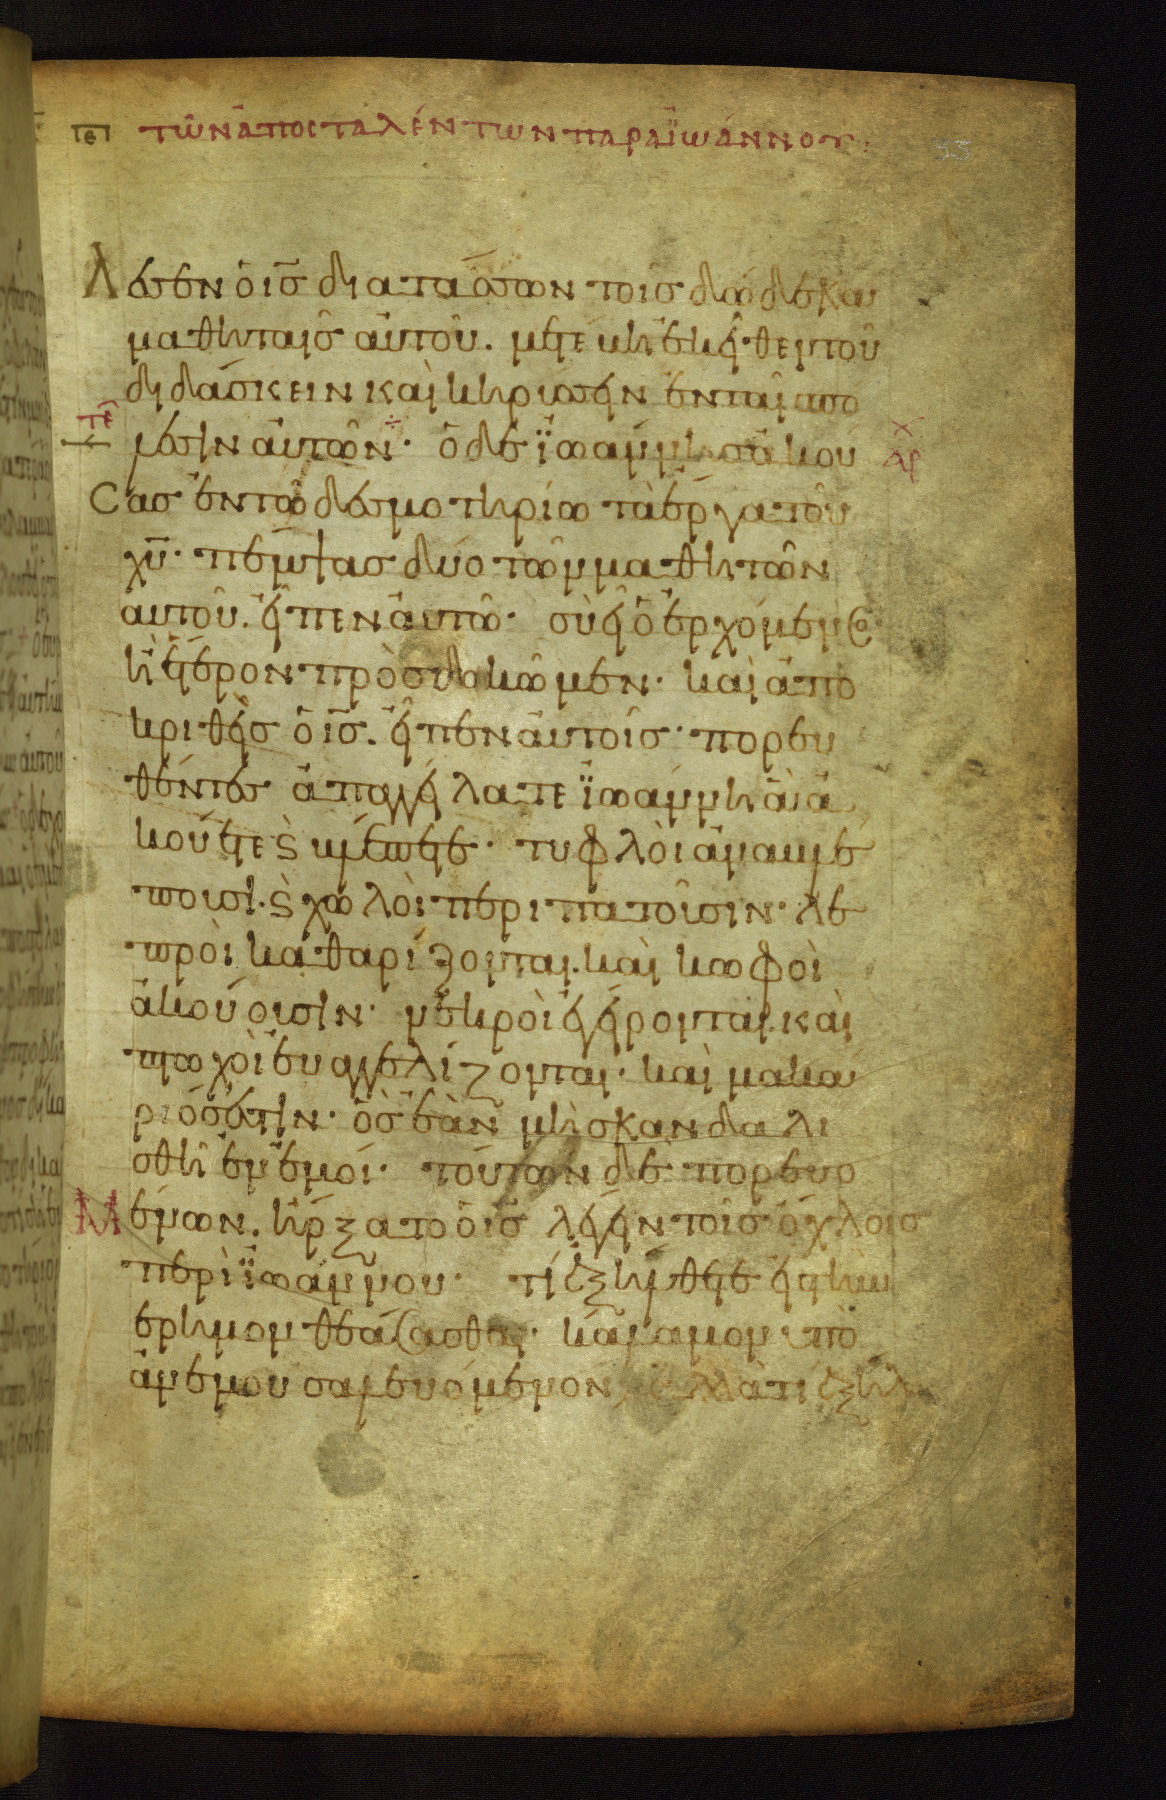 ιε τῶν ἀποσταλέντων παρὰ ἰωάννου: 33
λεσεν ὁ ις̅ διατάσσων τοῖς δώδεκα
μαθηταῖς αὐτοῦ. μετέβη ἐκεῖθεν τοῦ
διδάσκειν καὶ κηρύσσειν ἐν ταῖς πό
τε
λεσιν αὐτῶν· ὁ δὲ ἰωάννης ἀκού
αρ
σας ἐν τῶ δεσμωτηρίω τὰ ἔργα τοῦ
χυ̅· πέμψας δύο τῶν μαθητῶν
αὐτοῦ. εἶπεν αὐτῶ· σὺ εἶ ὁ ἐρχόμενος
ἢ ἕτερον προσδοκῶμεν· καὶ ἀπο
κριθεὶς ὁ ις̅. εἶπεν αὐτοῖς· πορευ
θέντες ἀπαγγείλατε ἰωάννη ἃ ἀ
κούετε ϗ βλέπετε· τυφλοὶ ἀναβλέ
πουσι. ϗ χωλοὶ περιπατοῦσιν· λε
προὶ καθαρίζονται. καὶ κωφοὶ
ἀκούουσιν· νεκροὶ ἐγείρονται. καὶ
πτωχοὶ εὐαγγελίζονται· καὶ μακά
ριός ἐστιν· ὃς ἐὰν μὴ σκανδαλι
σθῆ ἐν ἐμοί· τούτων δὲ πορευο
μένων. ἤρξατο ὁ ις̅ λέγειν τοῖς ὄχλοις
περὶ ἰωάννου· τί ἐξήλθετε εἰς τὴν
ἔρημον θεάσασθαι· κάλαμον ὑπὸ
ἀνέμου σαλευόμενον, ἀλλὰ τί ἐξήλ